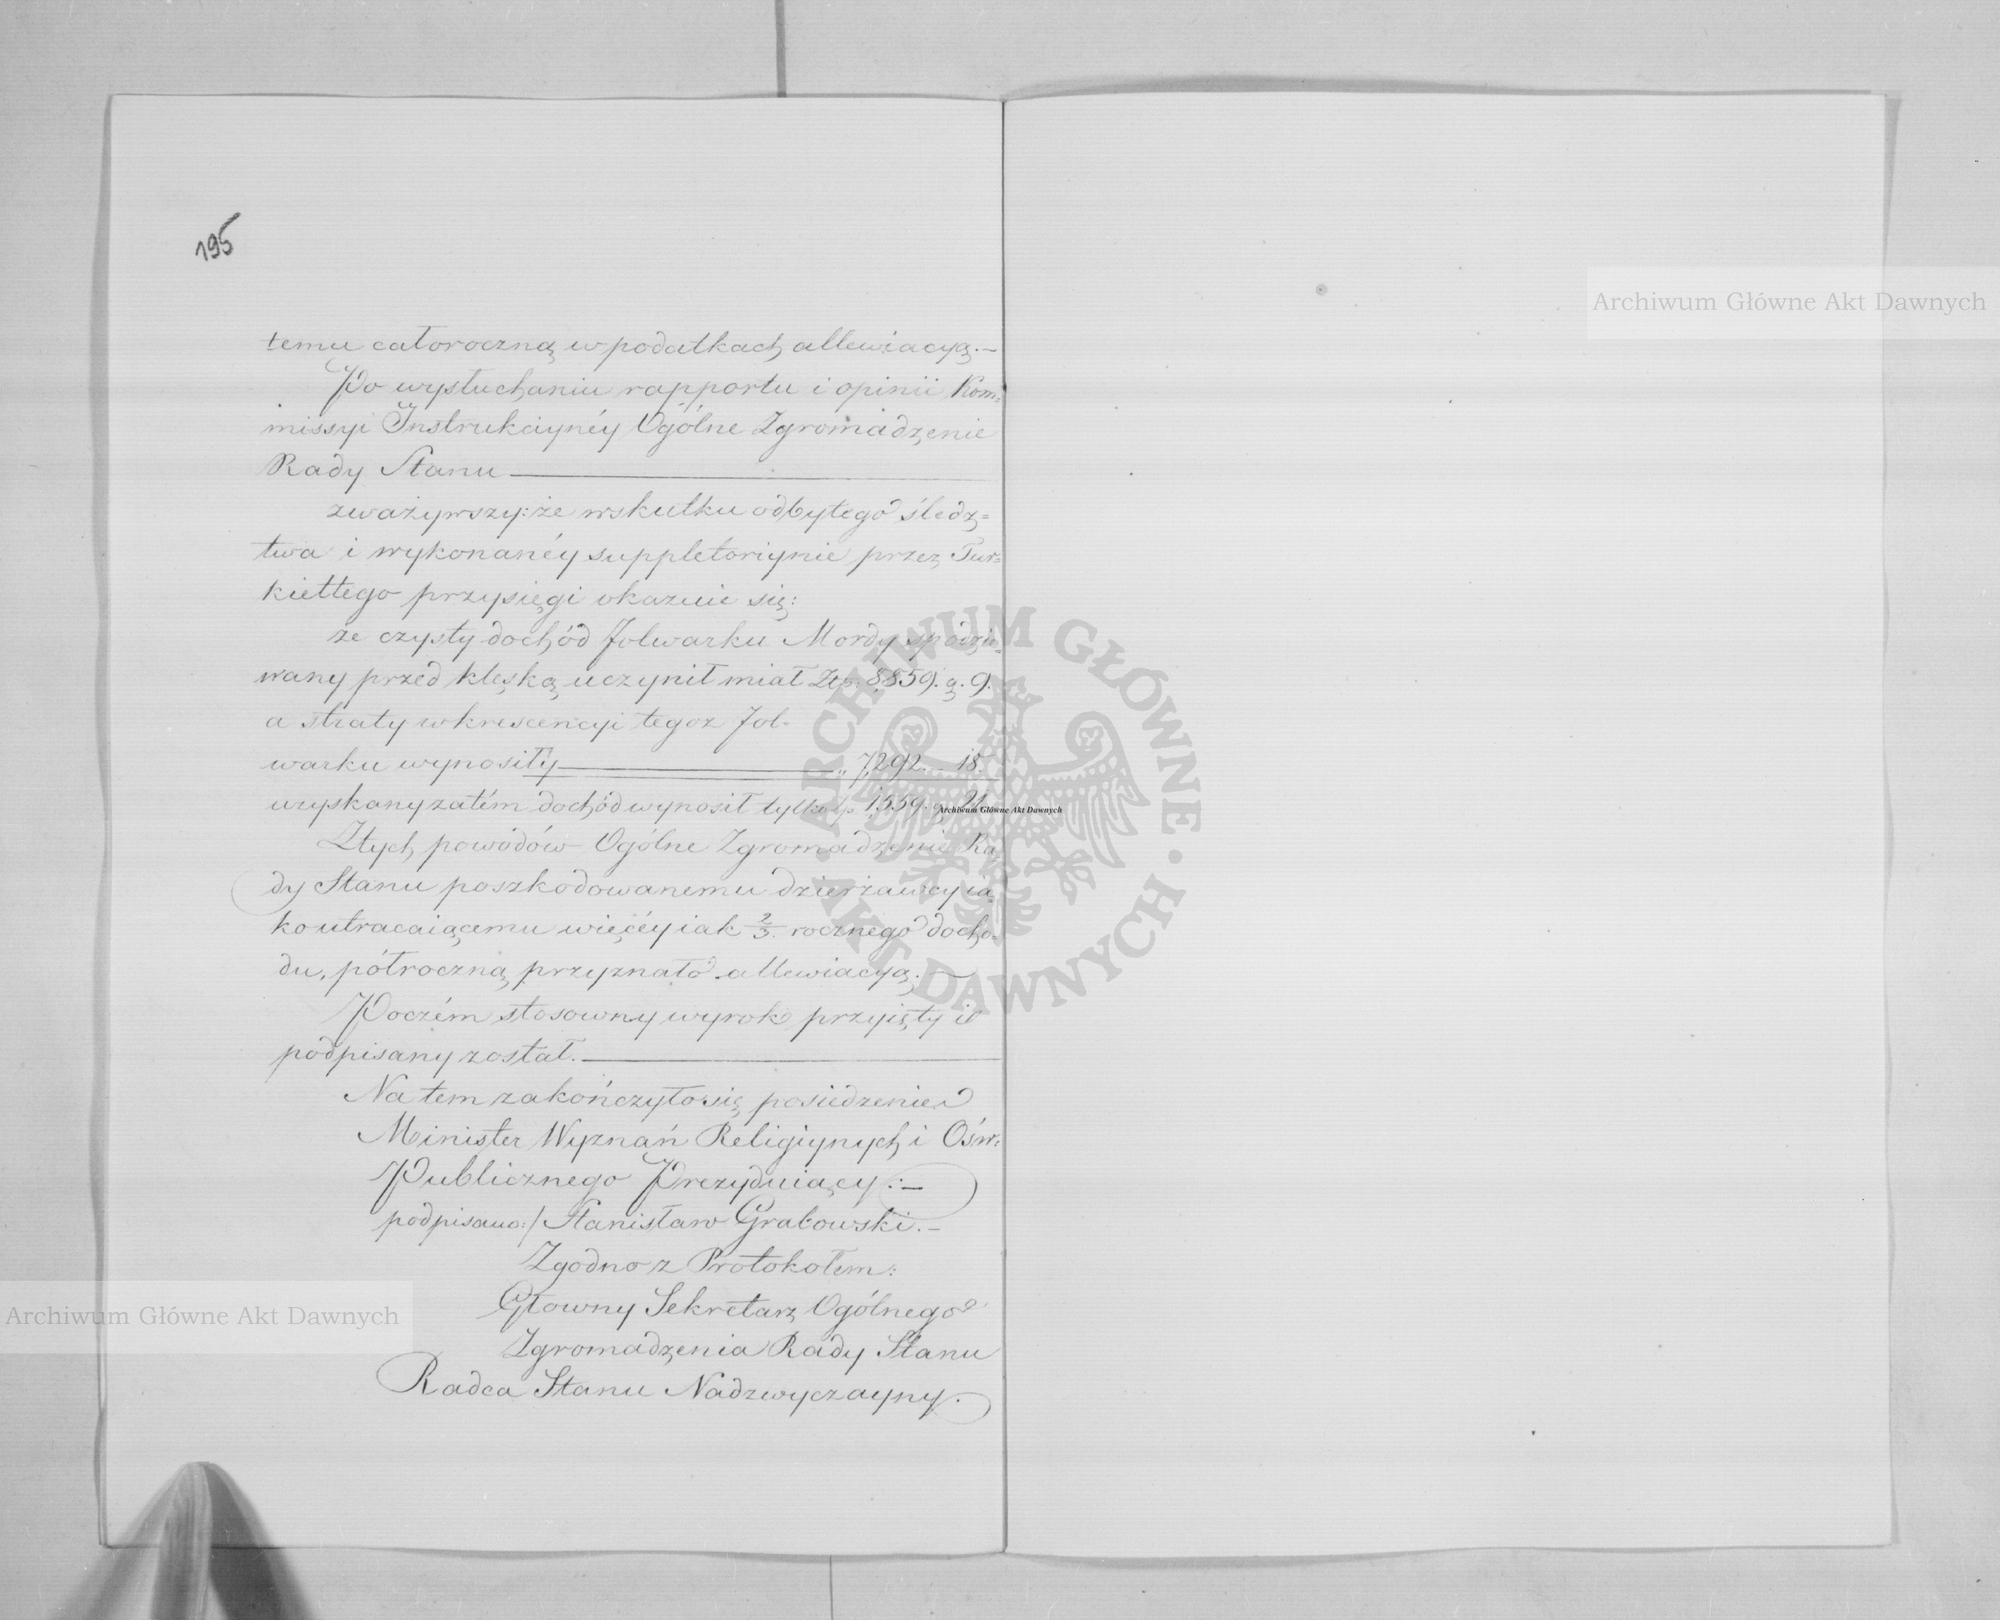 195
temu całoroczną w podatkach allewiacyą.—
Po wysłuchaniu rapportu i opinii Kom=
missyi Instrukciynéy Ogólne Zgromadzenie
Rady Stanu
zważywszy: że w skutku odbytego śledz=
twa i wykonanéy suppletoriynie przez Tur=
kiełłego przysięgi okazuie się:
że czysty dochód folwarku Mordy spodzie=
wany przed klęską uczynił miał Złp. 8,859. g. 9.
a straty w krescencyi tegoż fol-
warku wynosiły „ 7,292. – 18.
uzyskany zatém dochód wynosił tylko 1559. g. 21
Z tych powodów Ogólne Zgromadzenie Ra=
dy Stanu poszkodowanemu dzierżawcy ia=
ko utracaiącemu więcéy iak 2/3. rocznego docho=
du, półroczną przyznało allewiacyą.
Poczém stosowny wyrok przyięty i
podpisany został.
Na tem zakończyło się posiedzenie
Minister Wyznań Religiynych i Ośw:
Publicznego Prezyduiący.—
podpisano:/ Stanisław Grabowski.—
Zgodno z Protokołem:
Głowny Sekretarz Ogólnego
Zgromadzenia Rady Stanu
Radca Stanu Nadzwyczayny.
Archiwum Główne Akt Dawnych
Archiwum Główne Akt Dawnych
Archiwum Główne Akt Dawnych
ARCHIWUM GŁÓWNE · AKT DAWNYCH ·